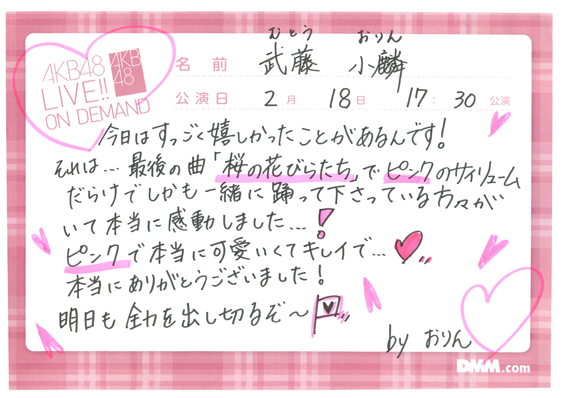 むとう おりん
名前 武藤 小麟
AKB48 AKB48
LIVE!!
ON DEMAND
公演日 2月 18日 17:30公演
今日はすっごく嬉しかったことがあるんです!
それは…最後の曲「桜の花びらたち」でピンクのサイリューム
だらけでしかも一緒に踊って下さっている方々が
いて本当に感動しました…!
ピンクで本当に可愛いくてキレイで…
本当にありがとうございました!
明日も全力を出し切るぞ〜
by おりん
DMM.com